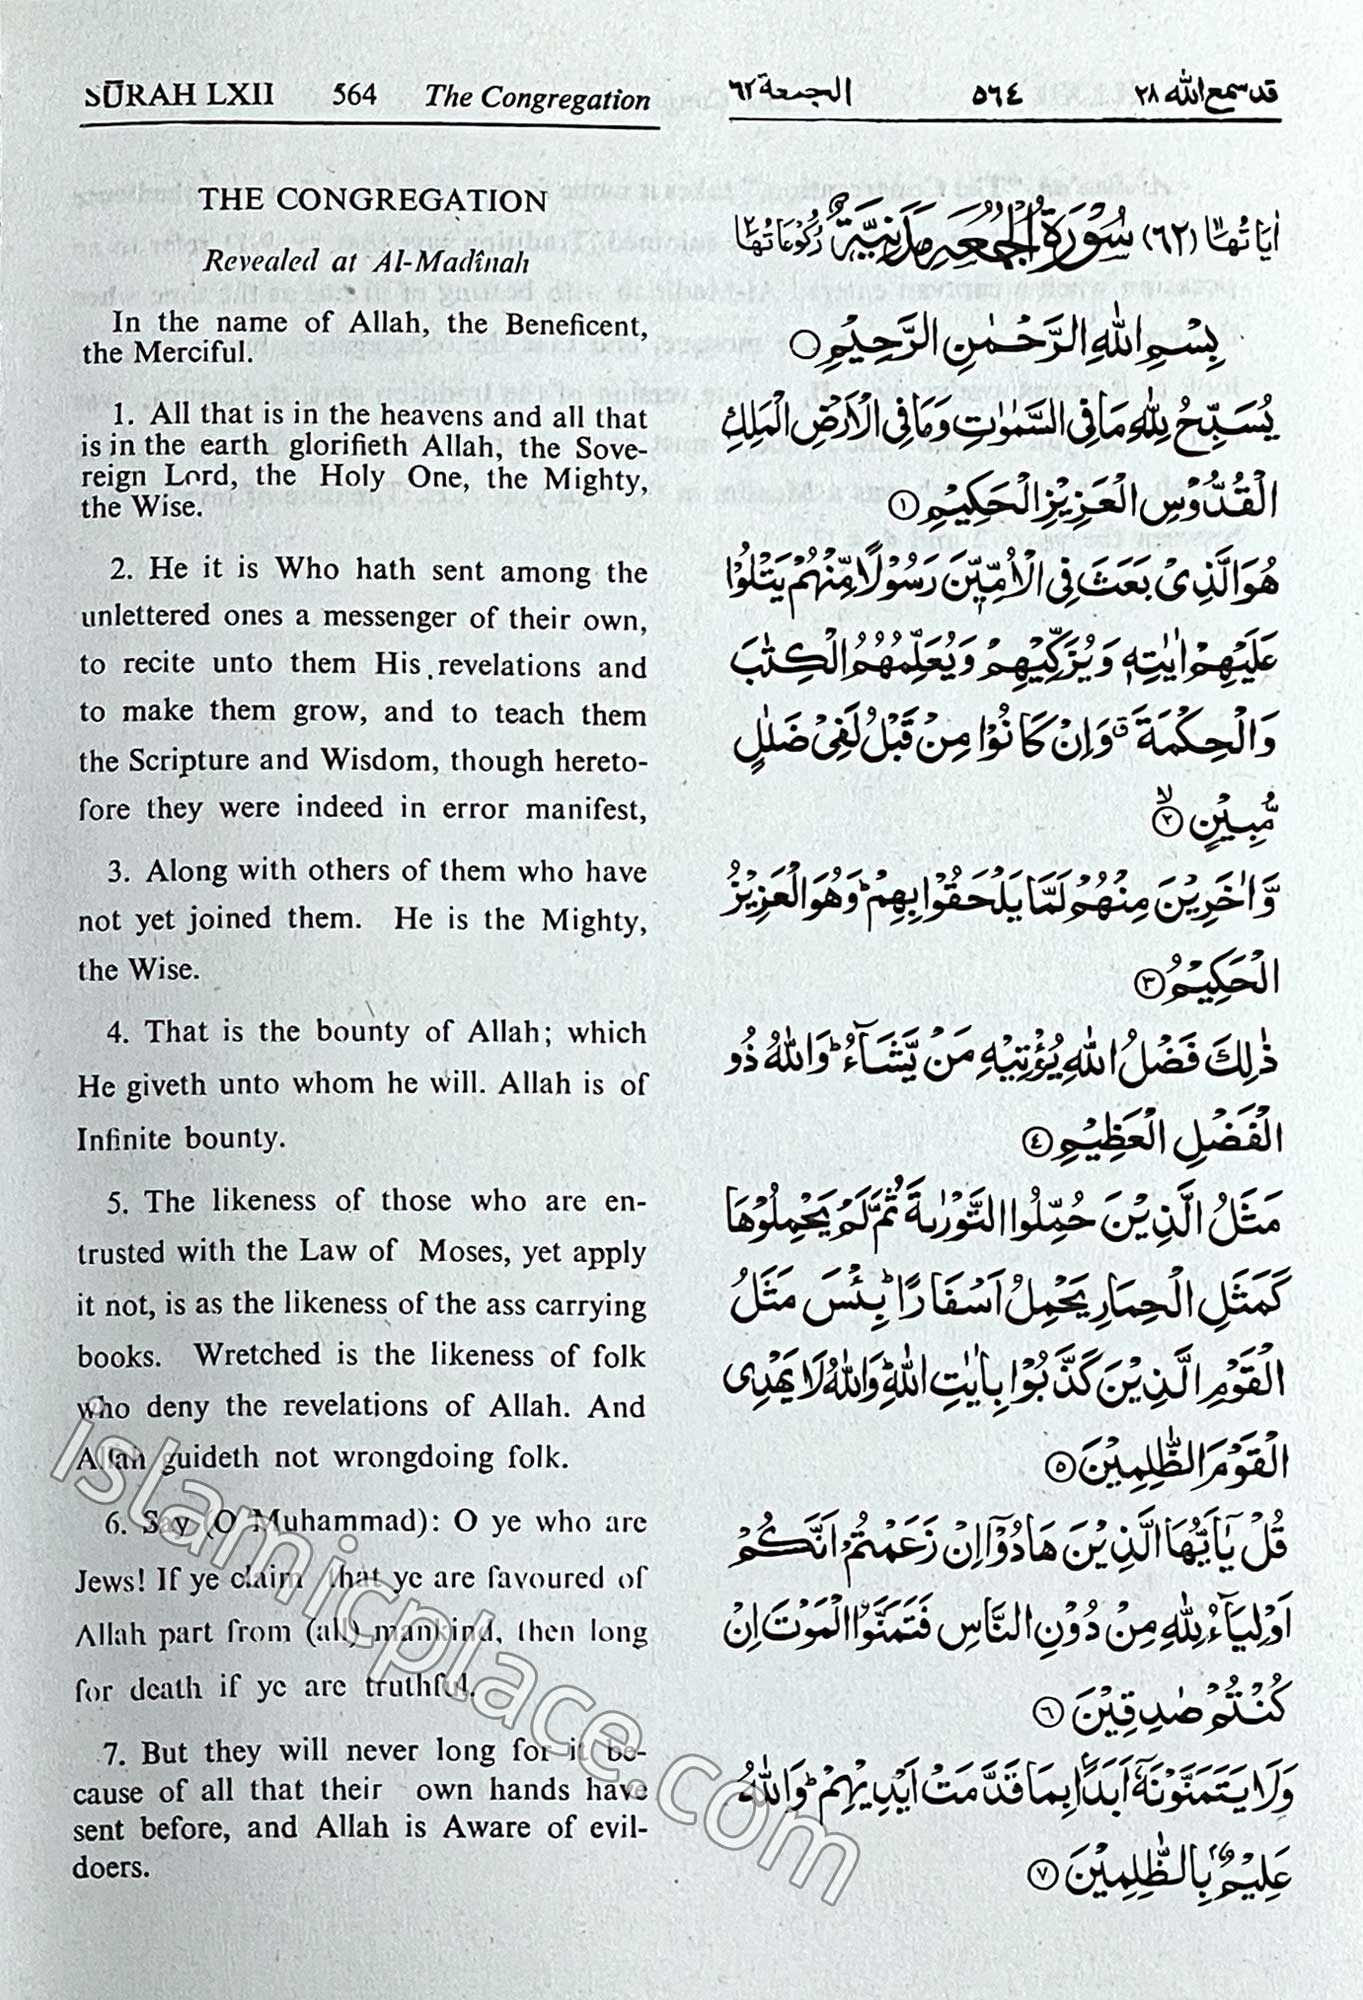 SŪRAH LXII 564 The Congregation
THE CONGREGATION
Revealed at Al-Madînah
In the name of Allah, the Beneficent,
the Merciful.
1. All that is in the heavens and all that
is in the earth glorifieth Allah, the Sove-
reign Lord, the Holy One, the Mighty,
the Wise.
2. He it is Who hath sent among the
unlettered ones a messenger of their own,
to recite unto them His revelations and
to make them grow, and to teach them
the Scripture and Wisdom, though hereto-
fore they were indeed in error manifest,
3. Along with others of them who have
not yet joined them. He is the Mighty,
the Wise.
4. That is the bounty of Allah; which
He giveth unto whom he will. Allah is of
Infinite bounty.
5. The likeness of those who are en-
trusted with the Law of Moses, yet apply
it not, is as the likeness of the ass carrying
books. Wretched is the likeness of folk
who deny the revelations of Allah. And
Allah guideth not wrongdoing folk.
6. Say (O Muhammad): O ye who are
Jews! If ye claim that ye are favoured of
Allah part from (all) mankind, then long
for death if ye are truthful.
7. But they will never long for it be-
cause of all that their own hands have
sent before, and Allah is Aware of evil-
doers.
قد سمع الله ٢٨ ٥٦٤ الجمعة ٦٢
اٰیَاتُهَا (٦٢) سُوْرَةُ الْجُمُعَةِ مَدَنِيَّةٌ رُكُوْعَاتُهَا
بِسْمِ اللّٰهِ الرَّحْمٰنِ الرَّحِيْمِ ○
يُسَبِّحُ لِلّٰهِ مَا فِى السَّمٰوٰتِ وَمَا فِى الْاَرْضِ الْمَلِكِ
الْقُدُّوْسِ الْعَزِيْزِ الْحَكِيْمِ ①
هُوَ الَّذِىْ بَعَثَ فِى الْاُمِّيّٖنَ رَسُوْلًا مِّنْهُمْ يَتْلُوْا
عَلَيْهِمْ اٰيٰتِهٖ وَيُزَكِّيْهِمْ وَيُعَلِّمُهُمُ الْكِتٰبَ
وَالْحِكْمَةَ ۗ وَاِنْ كَانُوْا مِنْ قَبْلُ لَفِىْ ضَلٰلٍ
مُّبِيْنٍ ②ۙ
وَّاٰخَرِيْنَ مِنْهُمْ لَمَّا يَلْحَقُوْا بِهِمْ ؕ وَهُوَ الْعَزِيْزُ
الْحَكِيْمُ ③
ذٰلِكَ فَضْلُ اللّٰهِ يُؤْتِيْهِ مَنْ يَّشَآءُ ؕ وَاللّٰهُ ذُو
الْفَضْلِ الْعَظِيْمِ ④
مَثَلُ الَّذِيْنَ حُمِّلُوا التَّوْرٰىةَ ثُمَّ لَمْ يَحْمِلُوْهَا
كَمَثَلِ الْحِمَارِ يَحْمِلُ اَسْفَارًا ؕ بِئْسَ مَثَلُ
الْقَوْمِ الَّذِيْنَ كَذَّبُوْا بِاٰيٰتِ اللّٰهِ ؕ وَاللّٰهُ لَا يَهْدِى
الْقَوْمَ الظّٰلِمِيْنَ ⑤
قُلْ يٰۤاَيُّهَا الَّذِيْنَ هَادُوْۤا اِنْ زَعَمْتُمْ اَنَّكُمْ
اَوْلِيَآءُ لِلّٰهِ مِنْ دُوْنِ النَّاسِ فَتَمَنَّوُا الْمَوْتَ اِنْ
كُنْتُمْ صٰدِقِيْنَ ⑥
وَلَا يَتَمَنَّوْنَهٗۤ اَبَدًۢا بِمَا قَدَّمَتْ اَيْدِيْهِمْ ؕ وَاللّٰهُ
عَلِيْمٌۢ بِالظّٰلِمِيْنَ ⑦
islamicplace.com